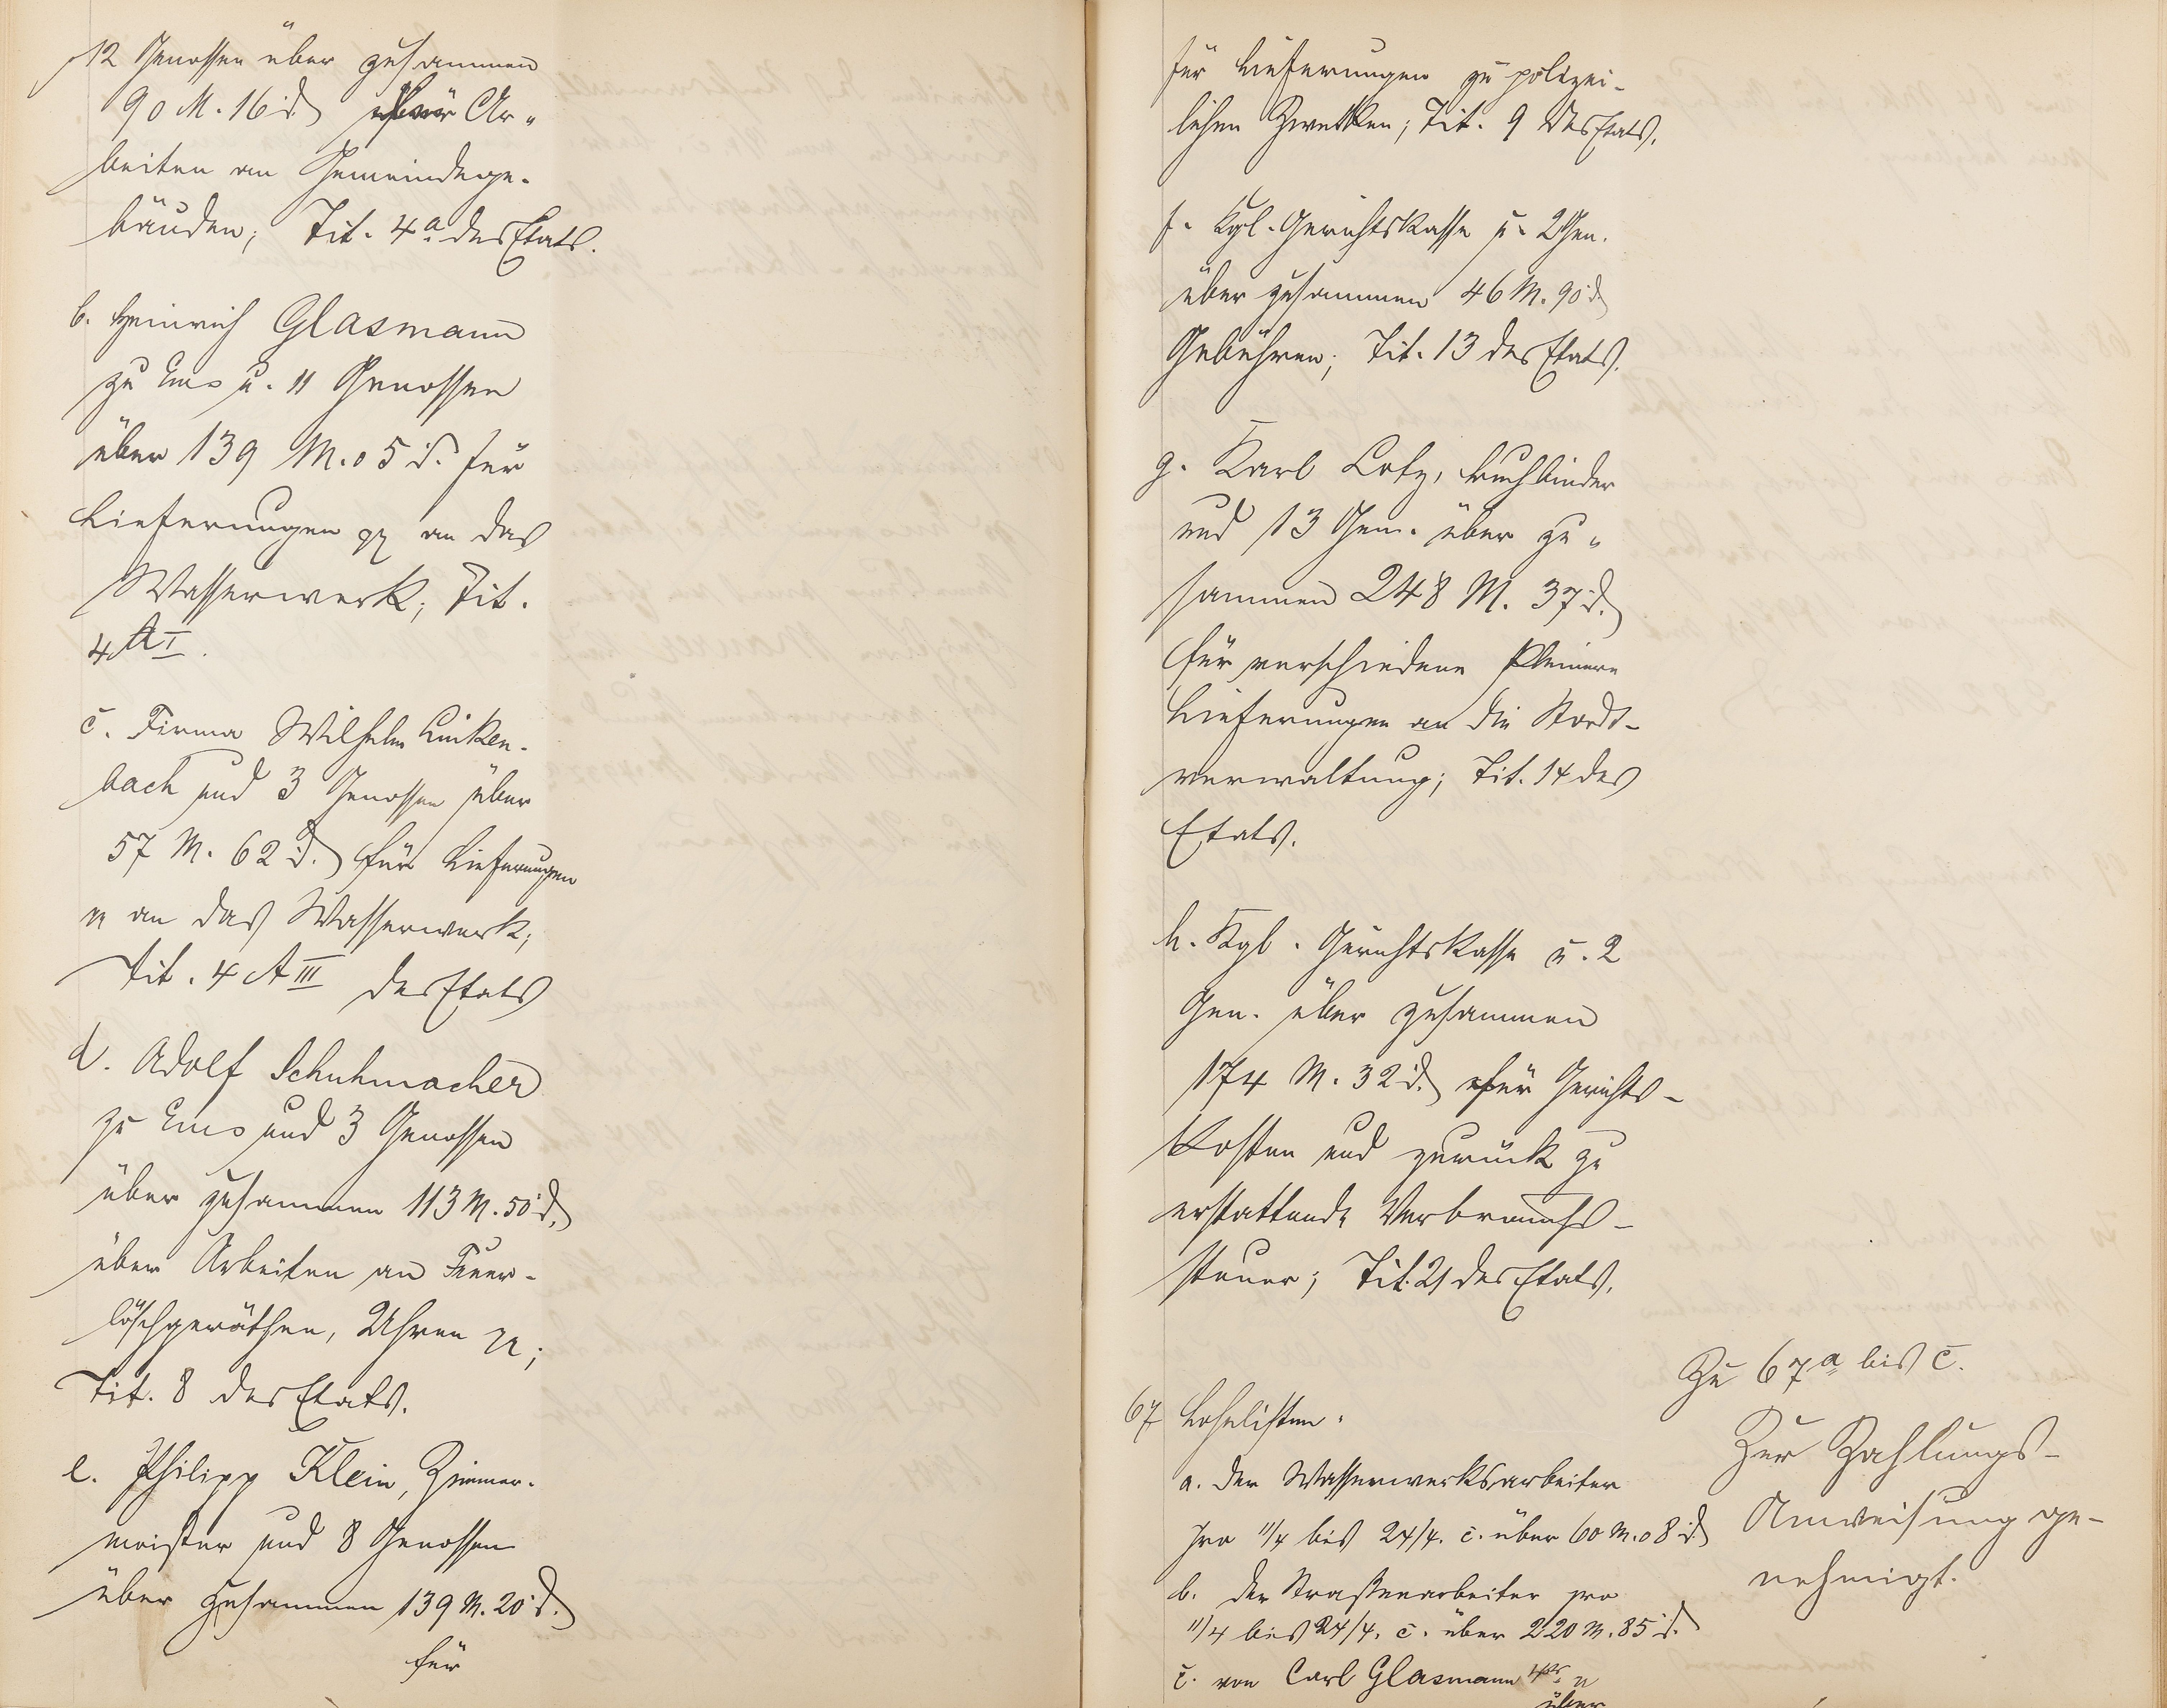 12 Genossen über zusammen
90 M. 16 d. für Ar-
beiten an Gemeindege-
bäuden; Tit. 4a des Etats.
b. Heinrich Glasmann
zu Ems u. 11 Genossen
über 139 M. 05 d. für
Lieferungen pp an das
Wasserwerk; Tit.
4 A I.
c. Firma Wilhelm Linken-
bach und 3 Genossen über
57 M. 62 d. für Lieferungen
an das Wasserwerk;
Tit. 4 A III des Etats
d. Adolf Schuhmacher
zu Ems und 3 Genossen
über zusammen 113 M. 50 d.
über Arbeiten an Feuer-
löschgeräthen, Uhren ;
Tit. 8 des Etats.
e. Philipp Klein, Zimmer-
meister und 8 Genossen
über zusammen 139 M. 20 d.
für
für Lieferungen zu polizei-
lichen Zwecken; Tit. 9 des Etats.
f. Kgl. Gerichtskasse u. 2 Gen.
über zusammen 46 M. 90 d
Gebühren; Tit. 13 des Etats.
g. Karl Lotz, Buchbinder
und 13 Gen. über zu-
sammen 248 M. 37 d.
für verschiedene kleinere
Lieferungen an die Stadt-
verwaltung; Tit. 14 des
Etats.
h. Kgl. Gerichtskasse u. 2
Gen. über zusammen
174 M. 32 d. für Gerichts-
kosten und zurück zu
erstattende Verbrauchs-
steuer; Tit. 21 des Etats.
67 Lohnlisten:
a. der Wasserwerksarbeiter
pro 11/4 bis 24/4. c. über 60 M. 08 d.
b. der Straßenarbeiter pro
11/4 bis 24/4. c. über 220 M. 85 d.
c. von Carl Glasmann
über
Zu 67a bis c.
Zur Zahlungs-
Anweisung ge-
nehmigt.